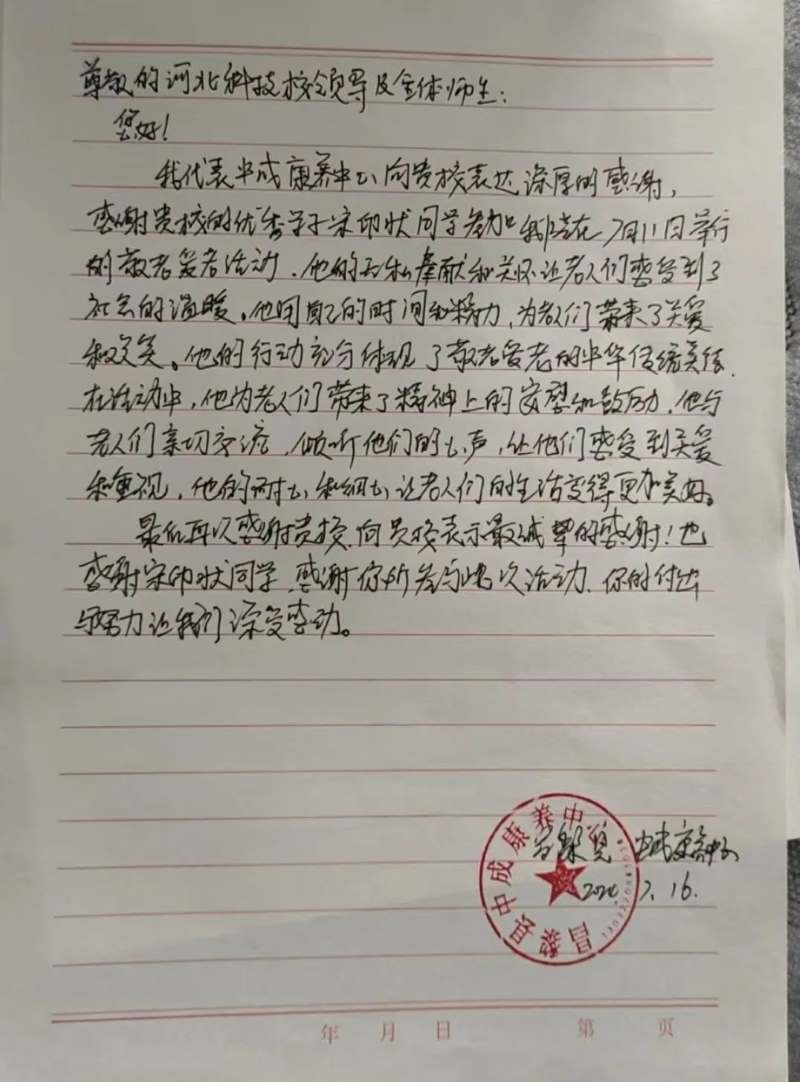 尊敬的河北科技校领导及全体师生:
您好!
我代表中成康养中心向贵校表达深厚的感谢,
感谢贵校的优秀学子宋印状同学参加我院在7月11日举行
的敬老爱老活动、他的无私奉献和关怀让老人们感受到了
社会的温暖。他用自己的时间和精力,为老人们带来了关爱
和欢笑。他的行动充分体现了敬老爱老的中华传统美德.
在活动中,他为老人们带来了精神上的安慰和鼓励,他与
老人们亲切交流,倾听他们的心声,让他们感受到关爱
和重视,他的耐心和细心让老人们的生活变得更加美好。
最后再次感谢贵校、向贵校表示最诚挚的感谢!也
感谢宋印状同学、感谢你所参与此次活动、你的付出
与努力让我们深受感动。
昌黎县中成康养中心
昌黎县中成康养中心
2024.7.16.
年 月 日 第 页